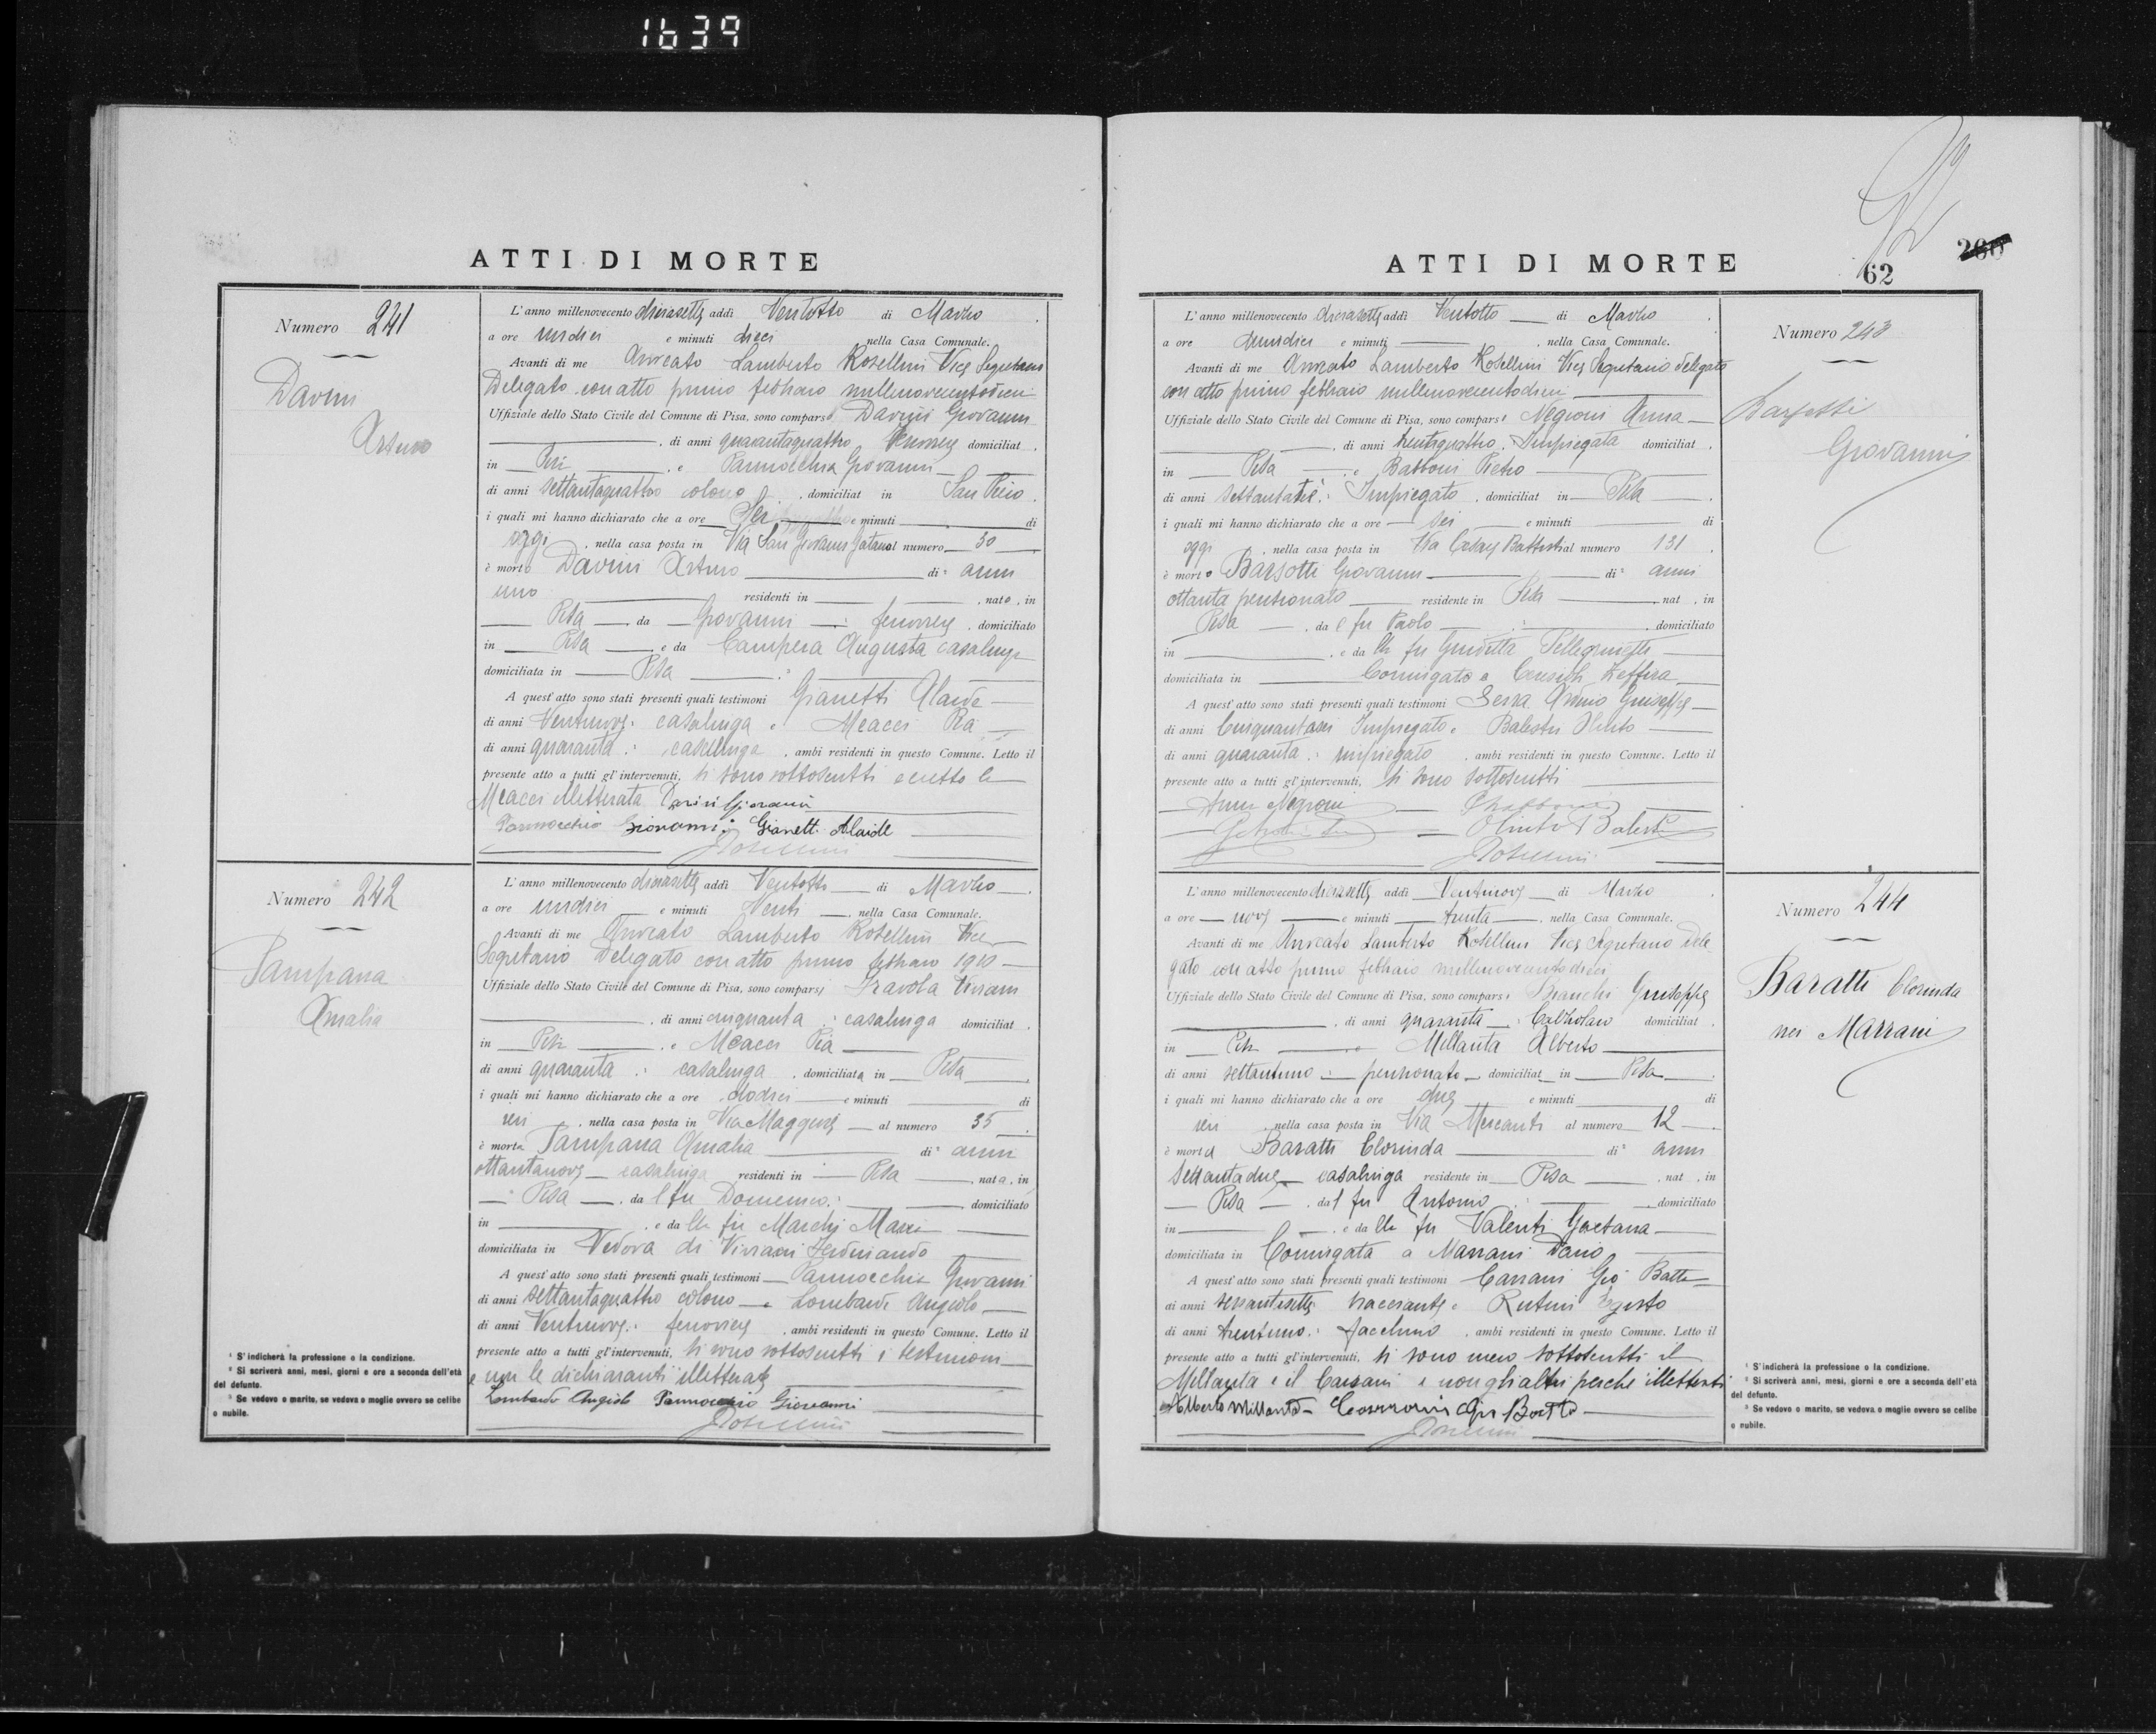 1639
ATTI DI MORTE
Numero 241
Davini
Arturo
L'anno millenovecento diciasette addì Ventotto di Marzo
a ore undici e minuti dieci nella Casa Comunale.
Avanti di me Avvocato Lamberto Rosellini Vice Segretario
Delegato con atto primo febbraio millenovecentodieci
Uffiziale dello Stato Civile del Comune di Pisa, sono comparsi Davini Giovanni
, di anni quarantaquattro, ferroviere domiciliat
in Pisa , e Pannocchia Giovanni
di anni settantaquattro colono , domiciliat in San Piero
i quali mi hanno dichiarato che a ore Sei e minuti di
oggi , nella casa posta in Via San Giovanni al numero 30
è morto Davini Arturo di² anni
uno residenti in , nato , in
Pisa da Giovanni ferroviere , domiciliato
in Pisa e da Campera Augusta casalinga
domiciliata in Pisa
A quest'atto sono stati presenti quali testimoni Gianetti Alaide
di anni Ventinove: casalinga e Meacci Pia
di anni quaranta: casalinga , ambi residenti in questo Comune. Letto il
presente atto a tutti gl'intervenuti, si sono sottoscritti eccetto la
Meacci illetterata Davini Giovanni
Pannocchia Giovanni Gianetti Alaide
LRosellini
Numero 242
Tampana
Amalia
L'anno millenovecento diciasette addì Ventotto di Marzo
a ore undici e minuti Venti , nella Casa Comunale.
Avanti di me Avvocato Lamberto Rosellini Vice
Segretario Delegato con atto primo febbraio 1910
Uffiziale dello Stato Civile del Comune di Pisa, sono comparsi Viviani
, di anni cinquanta : casalinga domiciliat
in Pisa , e Meacci Pia
di anni quaranta : casalinga , domiciliata in Pisa
i quali mi hanno dichiarato che a ore dodici e minuti di
ieri , nella casa posta in Via Maggiore al numero 35
è morta Tampana Amalia di² anni
ottantanove casalinga residenti in Pisa , nata , in
Pisa , da l fu Domenico: domiciliato
in , e da lla fu Marchi Maria
domiciliata in Vedova di Viviani Ferdinando
A quest'atto sono stati presenti quali testimoni Pannocchia Giovanni
di anni settantaquattro colono e Lombardi Angiolo
di anni Ventinove: ferroviere , ambi residenti in questo Comune. Letto il
presente atto a tutti gl'intervenuti, si sono sottoscritti i testimoni
e non le dichiaranti illetterate
Lombardi Angiolo Pannocchia Giovanni
LRosellini
¹ S'indicherà la professione o la condizione.
² Si scriverà anni, mesi, giorni e ore a seconda dell'età
del defunto.
³ Se vedovo o marito, se vedova o moglie ovvero se celibe
o nubile.
ATTI DI MORTE
62
260
L'anno millenovecento diciasette addì Ventotto di Marzo
a ore dodici e minuti , nella Casa Comunale.
Avanti di me Avvocato Lamberto Rosellini Vice Segretario delegato
con atto primo febbraio millenovecentodieci
Uffiziale dello Stato Civile del Comune di Pisa, sono comparsi Negroni Anna
, di anni trentaquattro, Impiegata domiciliat
in Pisa , e Babboni Pietro
di anni settantatre: Impiegato , domiciliat in Pisa
i quali mi hanno dichiarato che a ore sei e minuti di
oggi , nella casa posta in Via Cesare Battisti al numero 131
è morto Barsotti Giovanni di² anni
ottanta pensionato residente in Pisa nat , in
Pisa , da l fu Paolo , domiciliato
in , e da lla fu Giuditta Pellegrinetti
domiciliata in Coniugato a Zeffira
A quest'atto sono stati presenti quali testimoni Serra Giuseppe
di anni Cinquantasei Impiegato e Balestri Olinto
di anni quaranta : impiegato , ambi residenti in questo Comune. Letto il
presente atto a tutti gl'intervenuti, si sono sottoscritti
Anna Negroni PBabboni
Olinto Balestri
LRosellini
Numero 243
Barsotti
Giovanni
L'anno millenovecento diciasette addì Ventinove di Marzo
a ore nove e minuti trenta , nella Casa Comunale.
Avanti di me Avvocato Lamberto Rosellini Vice Segretario Dele
gato con atto primo febbraio millenovecentodieci
Uffiziale dello Stato Civile del Comune di Pisa, sono comparsi Bianchi Giuseppe
, di anni quaranta : Calzolaio domiciliat
in Pisa e Millanta Alberto
di anni settantuno : pensionato domiciliat in Pisa
i quali mi hanno dichiarato che a ore due e minuti di
ieri , nella casa posta in Via Mercanti al numero 12
è morta Baratti Clorinda di² anni
settantadue casalinga residente in Pisa , nat , in
Pisa , da l fu Antonio , domiciliato
in , e da lla fu Valenti Gaetana
domiciliata in Coniugata a Marrani Dario
A quest'atto sono stati presenti quali testimoni Carrani Gio Batta
di anni sessantasette bracciante e Rutini Egisto
di anni trentuno : facchino , ambi residenti in questo Comune. Letto il
presente atto a tutti gl'intervenuti, si sono meco sottoscritti il
Millanta e il Carrani e non gli altri perche illetterati
Alberto Millanta Carrani Gio Batta
LRosellini
Numero 244
Baratti Clorinda
nei Marrani
¹ S'indicherà la professione o la condizione.
² Si scriverà anni, mesi, giorni e ore a seconda dell'età
del defunto.
³ Se vedovo o marito, se vedova o moglie ovvero se celibe
o nubile.